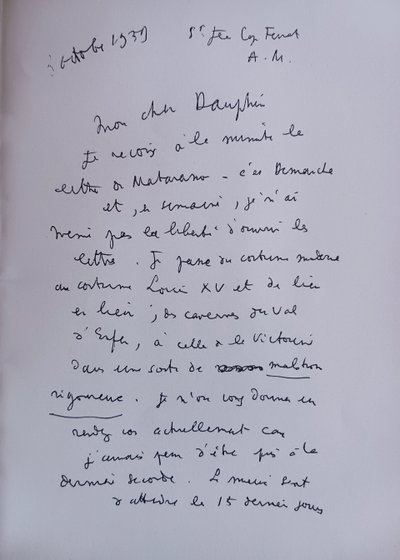 octobre 1959 St Jean Cap Ferrat
A.M.
Mon cher Dauphin
Je reçois à la minute la
lettre de Matarasso - c'est Dimanche
et, en semaine, je n'ai
même pas la liberté d'ouvrir les
lettres. Je passe du costume moderne
au costume Louis XV et de lieu
en lieu, des cavernes du Val
d'Enfer, à celle de la Victorine
dans une sorte de malstrom
rigoureux. Je n'ose vous donner un
rendez vous actuellement car
j'aurais peur d'être pris à la
dernière seconde. Le mieux serait
d'attendre les 15 derniers jours